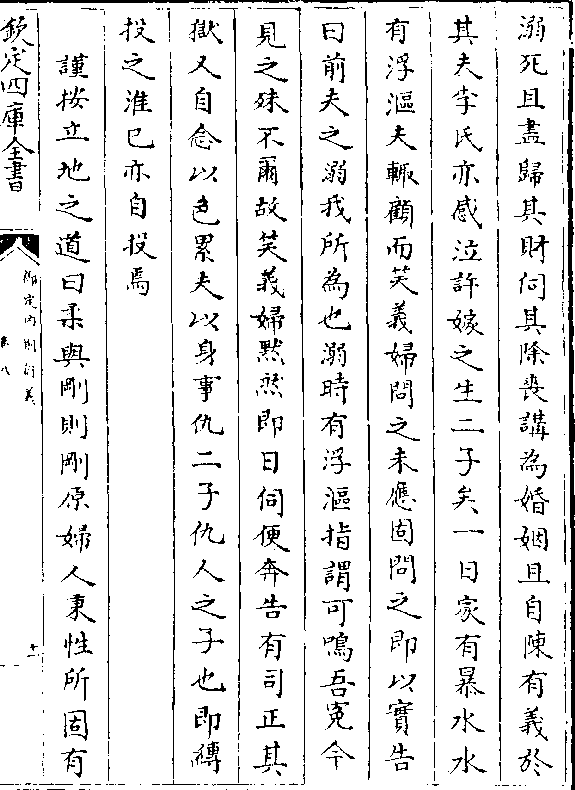 溺死且盡歸其財伺其除喪講為婚姻且自陳有義於
其夫李氏亦感泣許嫁之生二子矣一日家有暴水水
有浮漚夫輙顧而笑義婦問之未應固問之即以實告
曰前夫之溺我所為也溺時有浮漚指謂可鳴吾冤今
見之殊不爾故笑義婦黙然即日伺便奔告有司正其
獄又自念以色累夫以身事仇二子仇人之子也即縛
投之淮已亦自投焉
謹按立地之道曰柔與剛則剛原婦人秉性所固有
欽定四庫全書
御定內則衍義
卷八
十一